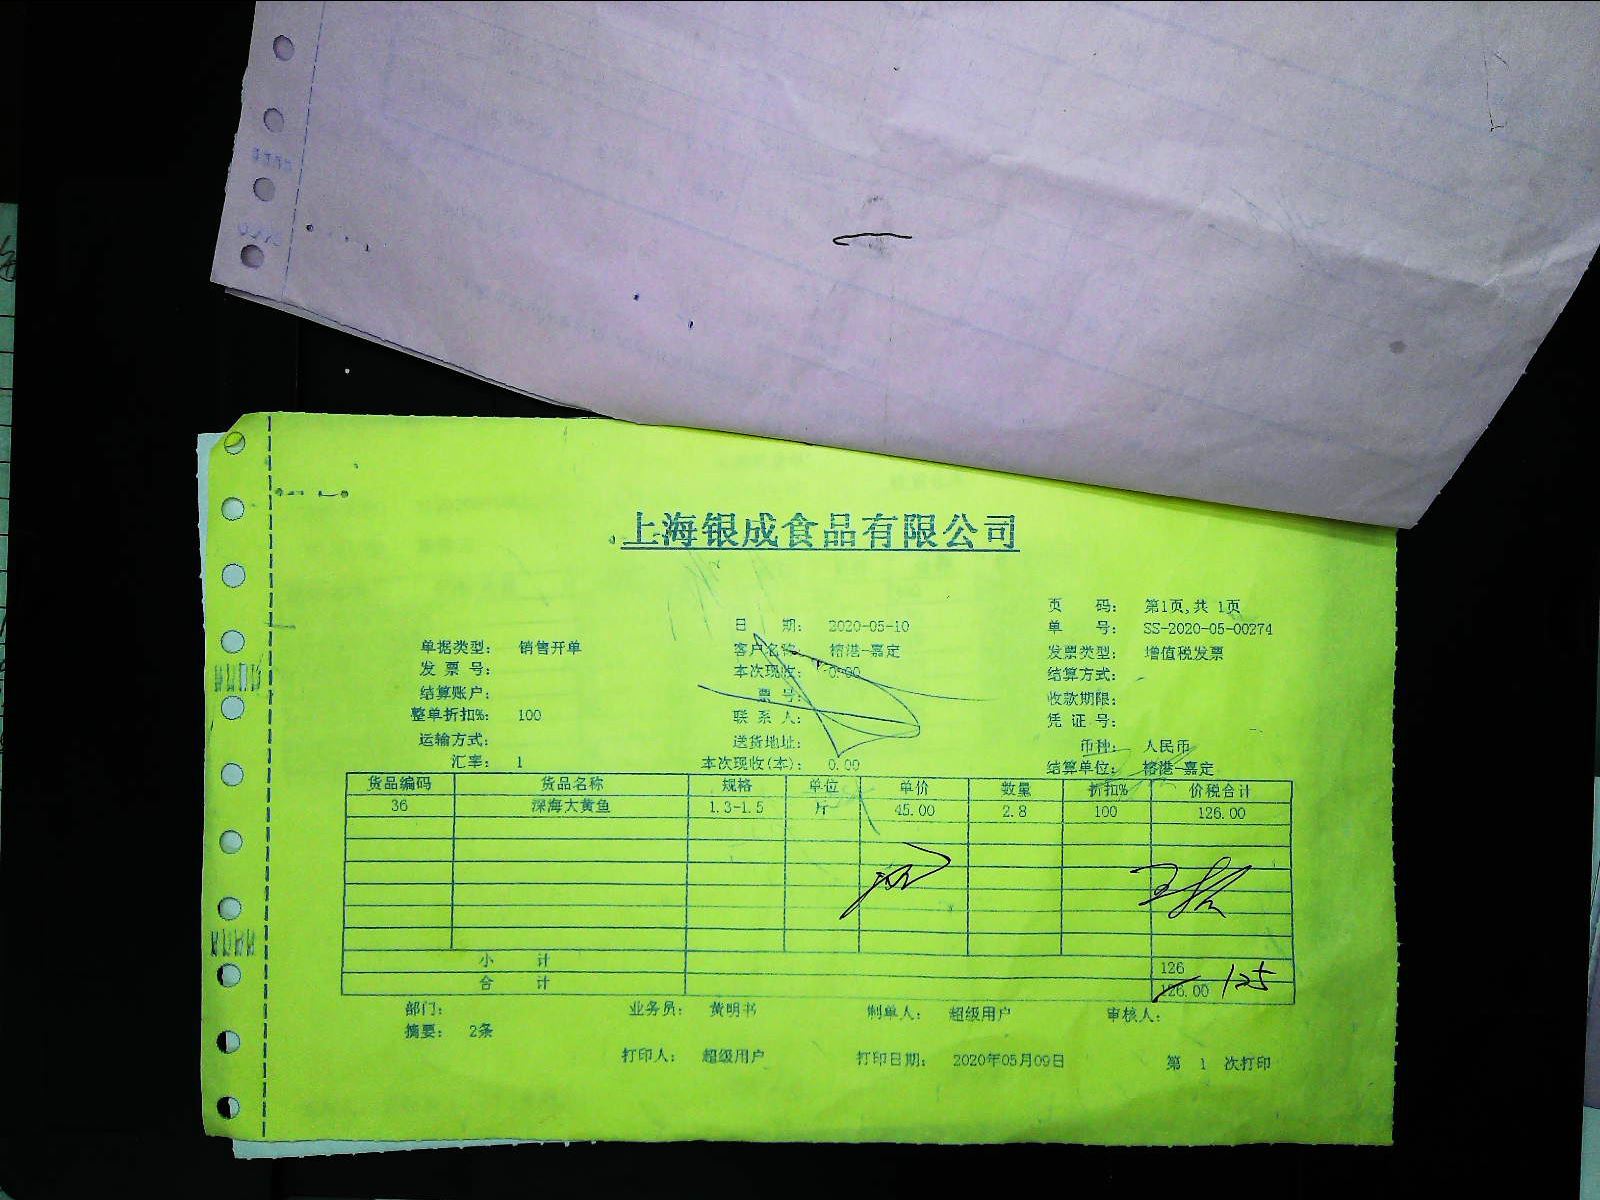 上海银成食品有限公司
页 码: 第1页,共 1页
日 期: 2020-05-10 单 号: SS-2020-05-00274
单据类型: 销售开单 客户名称: 榕港-嘉定 发票类型: 增值税发票
发 票 号: 本次现收: 0.00 结算方式:
结算账户: 票 号: 收款期限:
整单折扣%: 100 联 系 人: 凭 证 号:
运输方式: 送货地址: 币种: 人民币
汇率: 1 本次现收(本): 0.00 结算单位: 榕港-嘉定
货品编码 货品名称 规格 单位 单价 数量 折扣% 价税合计
36 深海大黄鱼 1.3-1.5 斤 45.00 2.8 100 126.00
小 计 126
合 计 126.00 125
部门: 业务员: 黄明书 制单人: 超级用户 审核人:
摘要: 2条
打印人: 超级用户 打印日期: 2020年05月09日 第 1 次打印